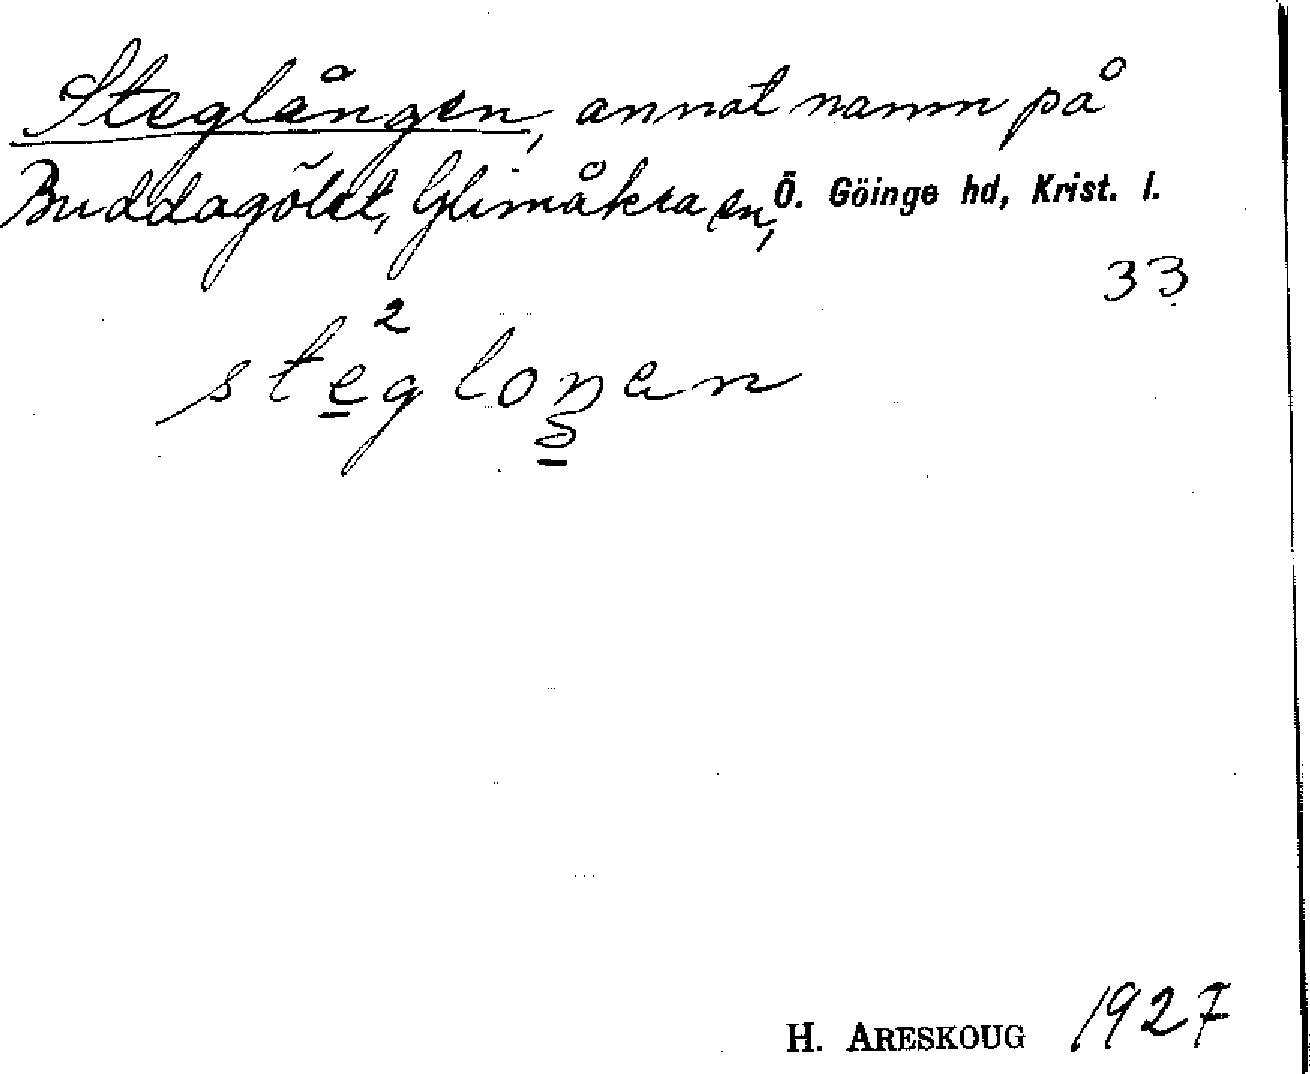 Steglången, annat namn på
Buddagölet, Glimåkra sn, Ö. Göinge hd, Krist. l.
33
2
stegloŋen
H. ARESKOUG 1927